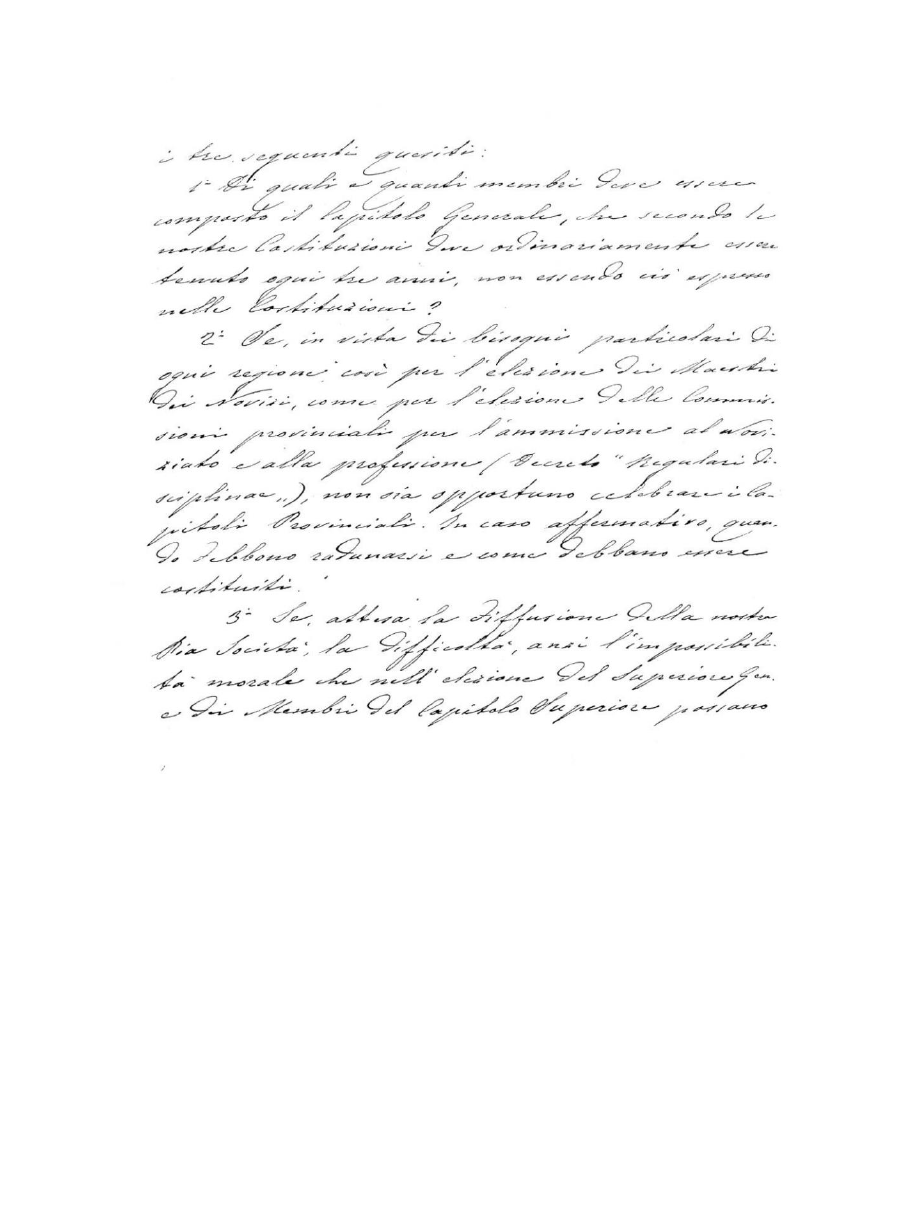 i tre seguenti quesiti:
1° Di quali e quanti membri deve essere
composto il Capitolo Generale, che secondo le
nostre Costituzioni deve ordinariamente essere
tenuto ogni tre anni, non essendo ciò espresso
nelle Costituzioni?
2° Se, in vista dei bisogni particolari di
ogni regione così per l'elezione dei Maestri
dei Novizi, come per l'elezione delle Commis-
sioni provinciali per l'ammissione al Novi-
ziato e alla professione (Decreto "Regulari Di-
sciplinae„), non sia opportuno celebrare i Ca-
pitoli Provinciali. In caso affermativo, quan-
do debbono radunarsi e come debbano essere
costituiti.
3° Se, attesa la diffusione della nostra
Pia Società, la difficoltà, anzi l'impossibili-
tà morale che nell'elezione del Superiore Gen.
e dei Membri del Capitolo Superiore possano